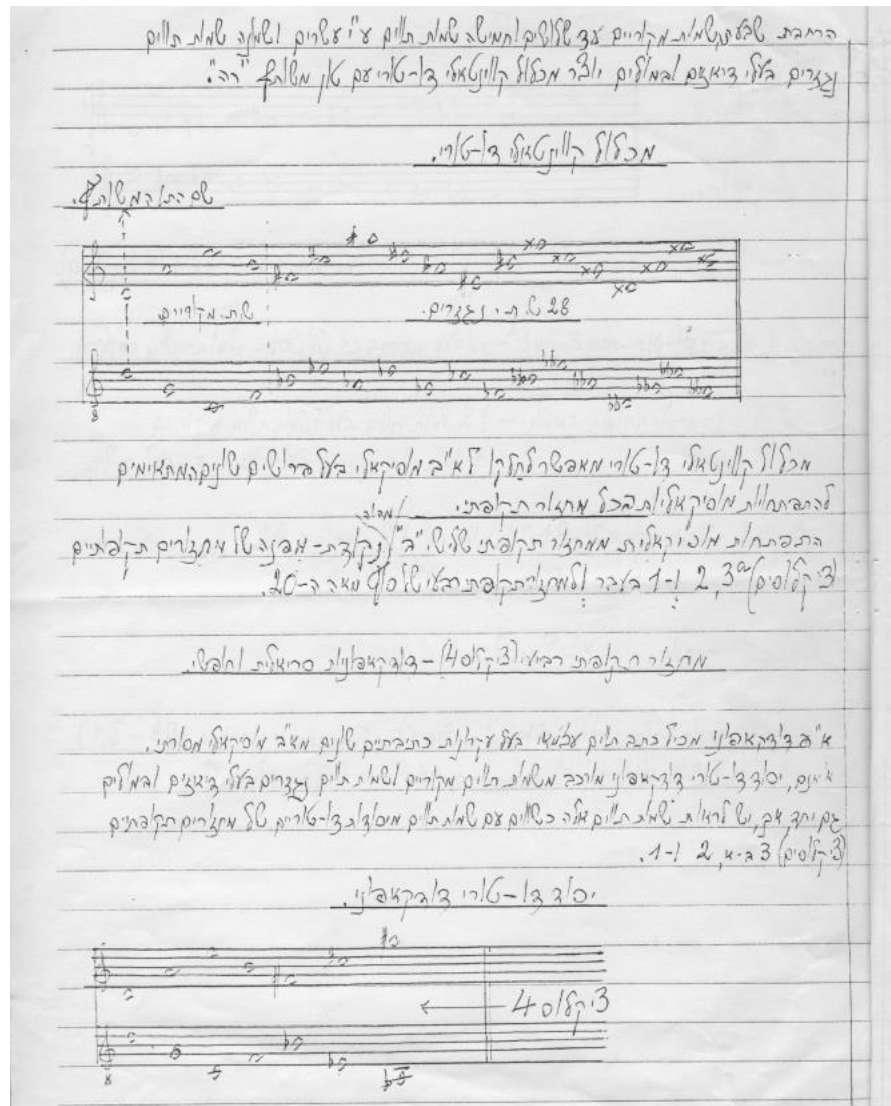 הרחבת שבעת שמות מקוריים עד שלושים וחמישה שמות תווים ע"י עשרים ושמונה שמות תווים
נגזרים בעלי דיאזים ובמולים יוצר מכלול קווינטאלי דו-טורי עם טון משותף "רה".
מכלול קווינטאלי דו-טורי.
שם התו המשותף.
שת. מקוריים
28 ש.ת. נגזרים.
8
מכלול קווינטאלי דו-טורי מאפשר לחלקו לא"ב מוסיקאלי בעל גבולות שונים המתאימים
להתפתחות מוסיקאלית בכל מחזור תקופתי.
מהווה
התפתחות מוסיקאלית ממחזור תקופתי שלישי "ב" נקודת-מפנה של מחזורים תקופתיים
(ציקלוסים) 3a, 2 ו-1 בעבר ולמחזור תקופתי רבעי של סוף מאה ה-20.
מחזור תקופתי רביעי (ציקלוס 4) – דודקאפוניות סריאלית וחופשי.
א"ב דודקאפוני מכיל כתב תווים עצמאי בעל עקרונות כתיבתיים שונים מא"ב מוסיקאלי מסורתי.
אמנם, יסוד דו-טורי דודקאפוני מורכב משמות תווים מקוריים ושמות תווים נגזרים בעלי דיאזים ובמולים
גם יחד, אך, יש לראות שמות תווים אלה כשווים עם שמות תווים מיסודות דו-טוריים של מחזורים תקופתים
(ציקלוסים) 3 ב-א, 2 ו-1.
יסוד דו-טורי דודקאפוני.
ציקלוס 4
8